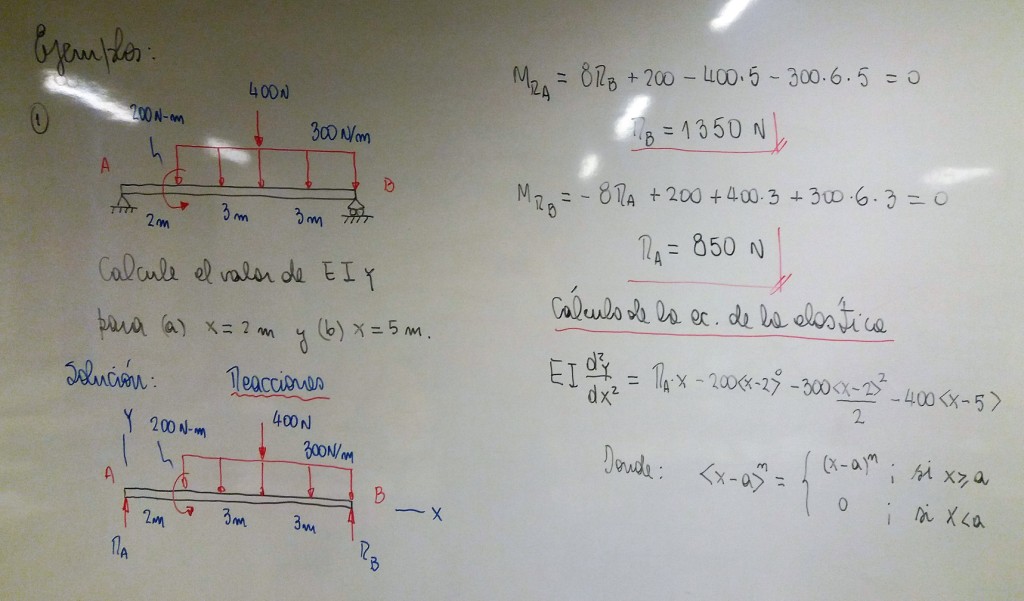 Ejemplos:
①
400N
200N-m
300N/m
A
B
2m
3m
3m
Calcule el valor de EIY
para (a) x=2m y (b) x=5m.
Solución:
Reacciones
Y
200N-m
400N
300N/m
A
B
x
2m
3m
3m
R_A
R_B
M_{R_A} = 8R_B + 200 - 400·5 - 300·6·5 = 0
R_B = 1350 N
M_{R_B} = -8R_A + 200 + 400·3 + 300·6·3 = 0
R_A = 850 N
Cálculo de la ec. de la elástica
EI d²Y/dx² = R_A·x - 200<x-2>⁰ - 300<x-2>²/2 - 400<x-5>
Donde: <x-a>ⁿ = { (x-a)ⁿ ; si x≥a
0 ; si x<a